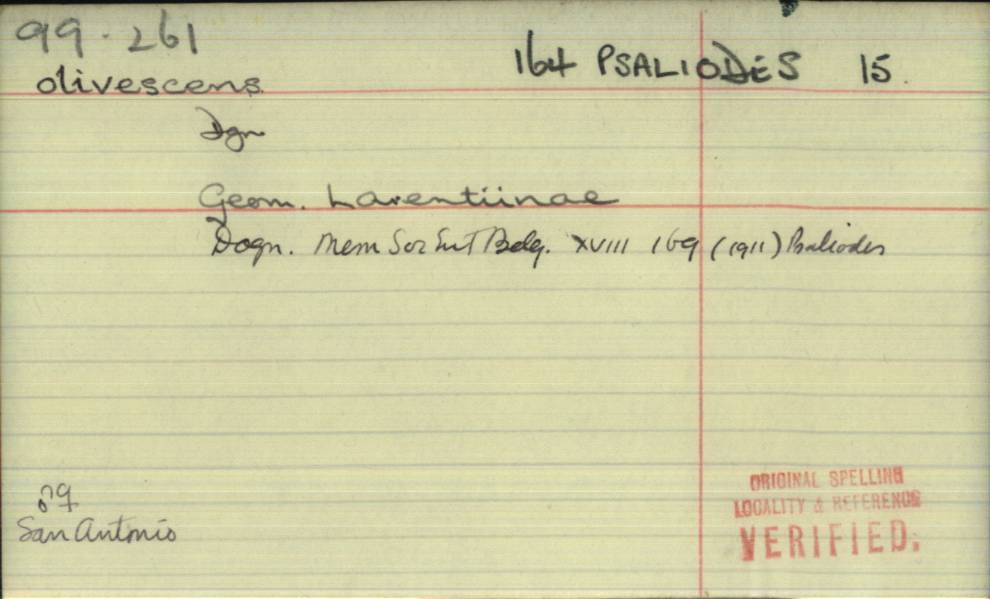 99.261
164 PSALIODES 15.
olivescens
Dgn
Geom. Larentiinae
Dogn. Mem Soc Ent Belg. XVIII 169 (1911) Psaliodes
♂♀
San Antonio
ORIGINAL SPELLING
LOCALITY & REFERENCE
VERIFIED.